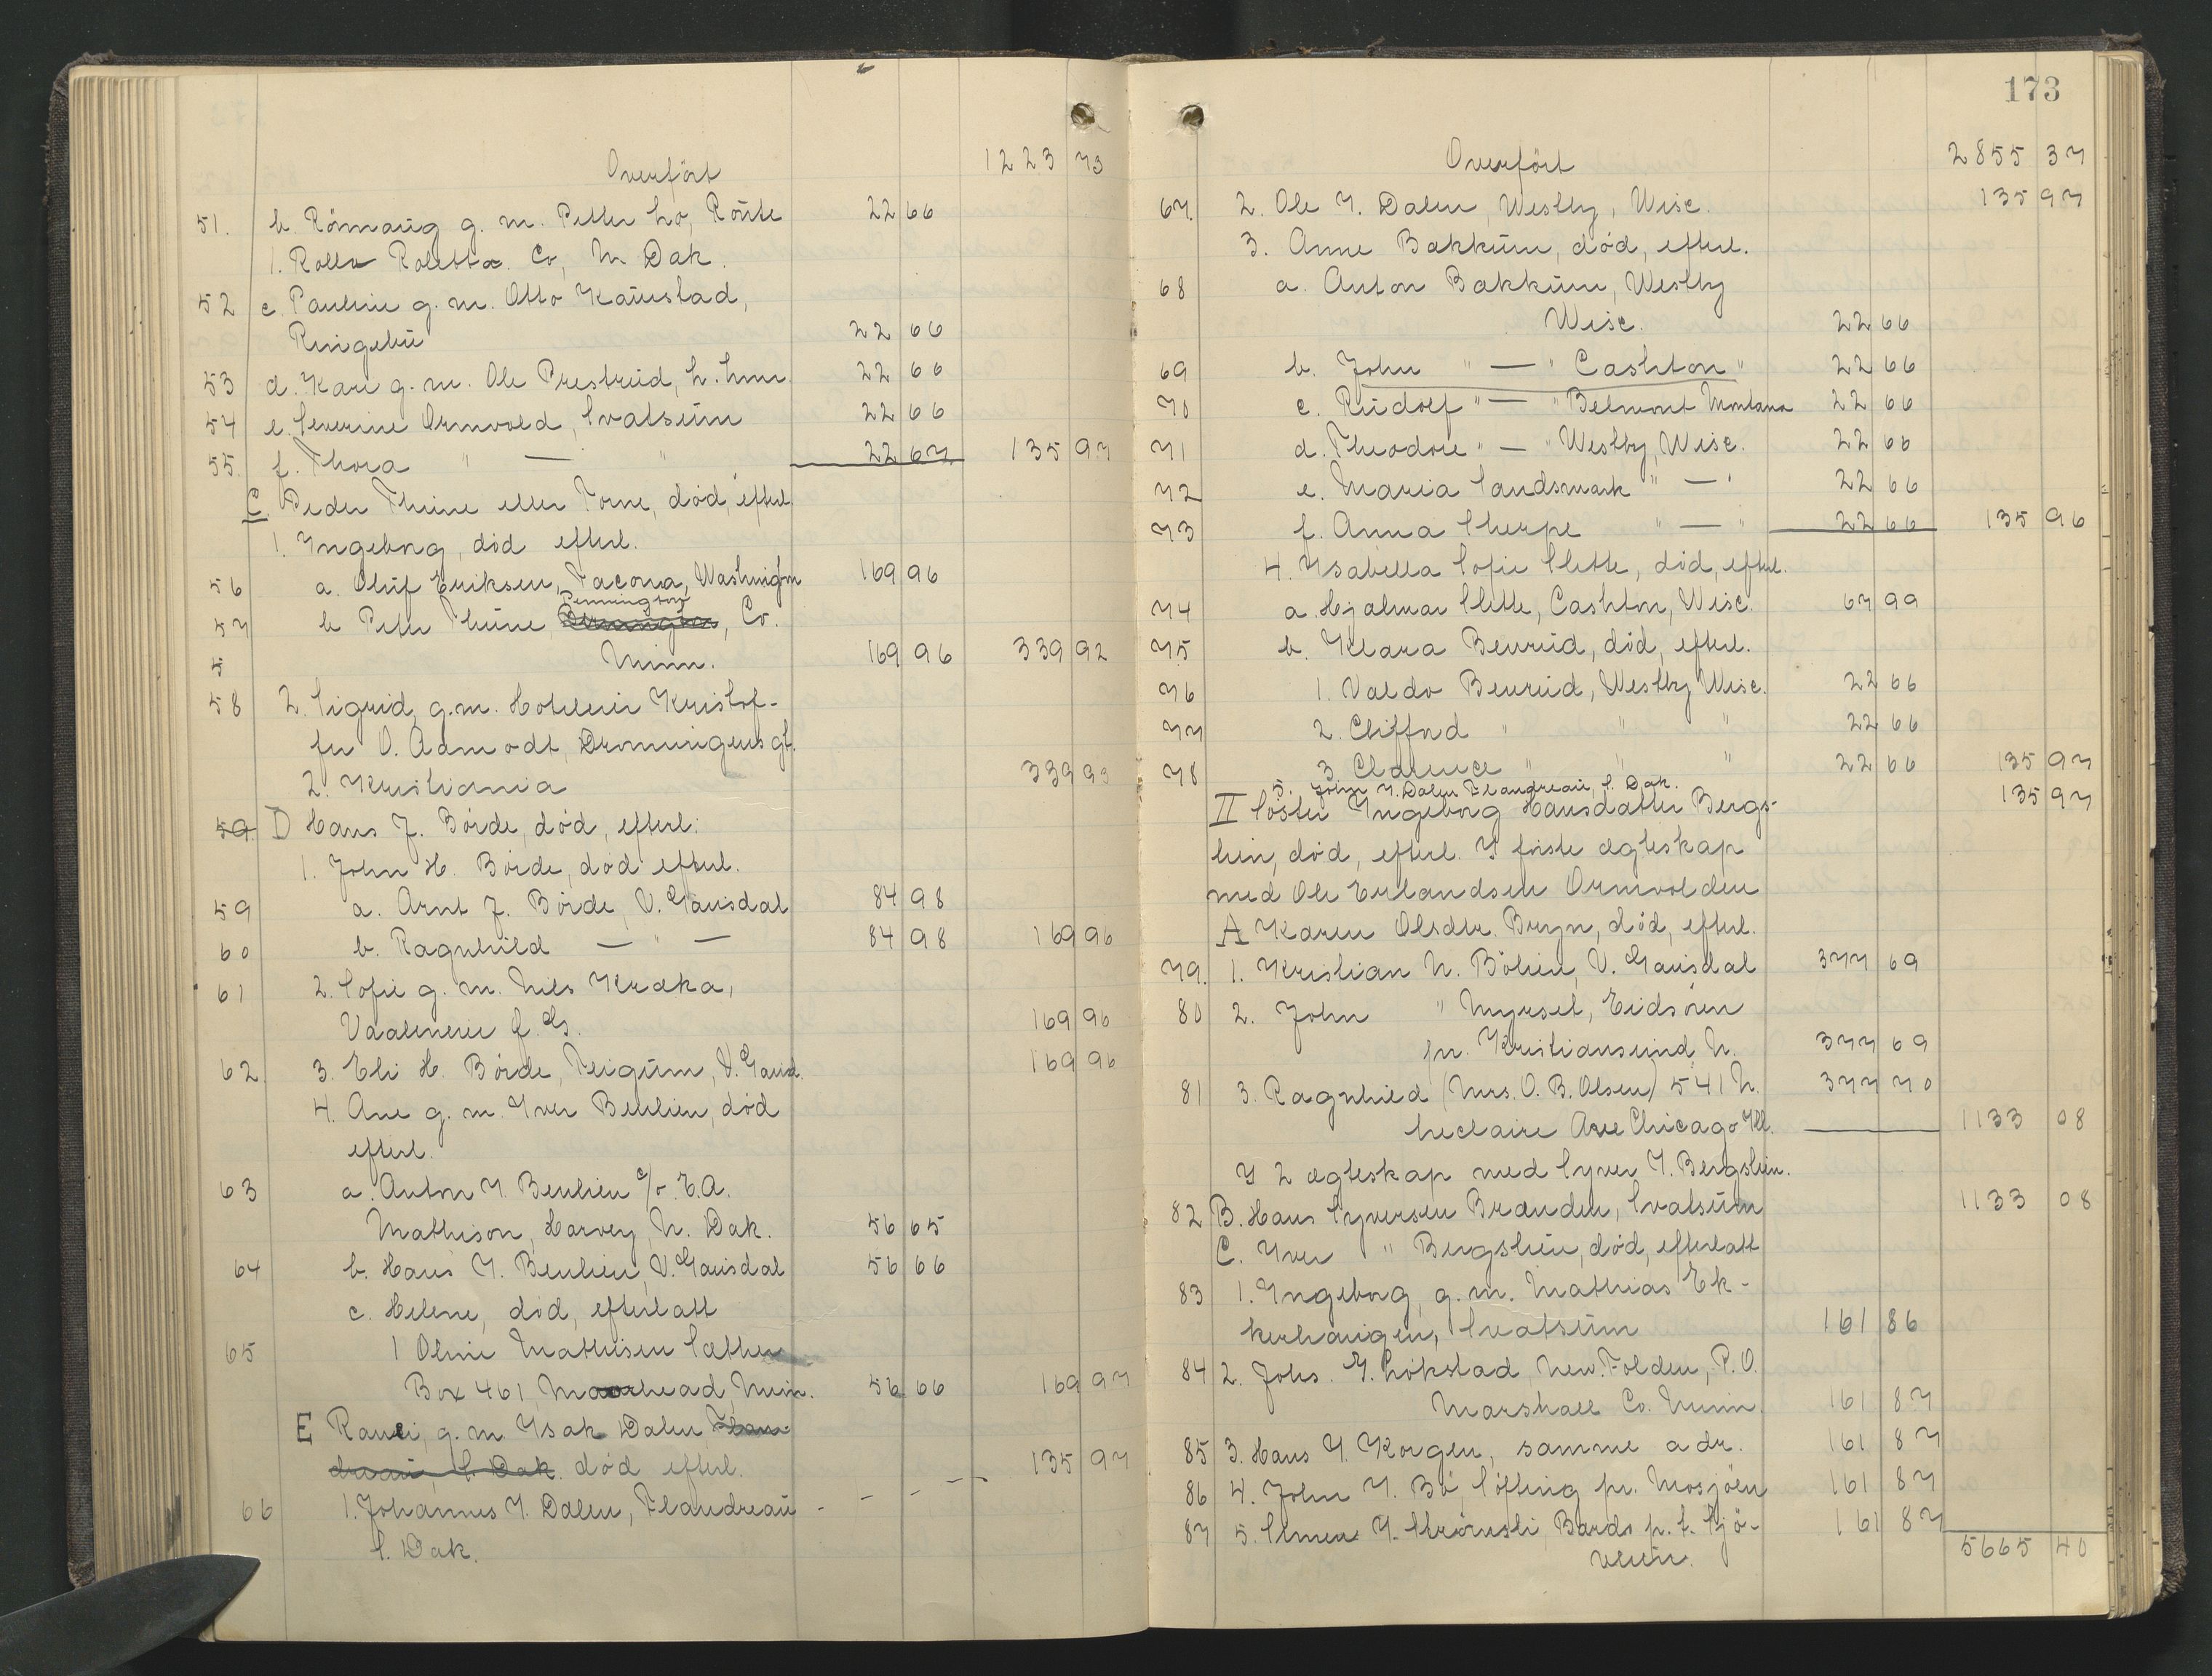 Overført 1223 73
51. b. Rønnaug g. m. Petter Lo, Route 22 66
1. Rolla Roletta Co, N. Dak.
52 c. Pauline g. m. Otto Kaurstad,
Ringebu 22 66
53 d. Kari g. m. Ole Prestrud, L.hmr. 22 66
54 e. Severine Ormvold, Svatsum 22 66
55. f. Thora " — " 22 67 135 97
C. Peder Thune eller Torne, død, efterl.
1. Ingeborg, død efterl.
56 a. Oluf Eriksen, Tacoma, Washington 169 96
Pennington
57 b Peter Thune, , Co.
5 Minn. 169 96 339 92
58 2. Sigrid, g.m. Hoteleier Kristof-
fer O. Aamodt, Dronningens gt.
2. Kristiania 339 93
59. D Hans J. Bøide, død, efterl.
1. John H. Bøide, død efterl.
59 a. Arnt J. Bøide, V. Gausdal 84 98
60 b. Ragnhild — " — 84 98 169 96
61 2. Sofie g. m. Nils Kraka,
Vaalerveie 169 96
62. 3. Eli H. Bøide, Teigum, V. Gausd. 169 96
4. Ane g. m. Iver Benlien, død
efterl.
63 a. Anton I. Benlien c/o E.A.
Mathison, Harvey, N. Dak. 56 65
64 b. Hans I. Benlien, V. Gausdal 56 66
c. Helene, død, efterlatt
65 1 Oline Mathisen Sæther
Box 461, Moorhead, Minn. 56 66 169 97
E Randi, g. m. Isak Dalen, Flan-
dreau, S. Dak. død efterl. 135 97
66 1. Johannes I. Dalen, Flandreau - - - —
S. Dak.
173
Overført 2855 37
67. 2. Ole I. Dalen, Westby, Wisc. 135 97
3. Anne Bakkum, død, efterl.
68 a. Anton Bakkum, Westby
Wisc. 22 66
69 b. John " — " Cashton " 22 66
70 c. Rudolf " — " Belmont Montana 22 66
71 d. Theodore " — " Westby, Wisc. 22 66
72 e. Maria Landsmark " — " 22 66
73 f. Anna Sherpe " — " 22 66 135 96
4. Isabella Sofie Slette, død, efterl.
74 a. Hjalmar Slette, Cashton, Wisc. 67 99
75 b. Klara Benrud, død, efterl.
76 1. Valdo Benrud, Westby Wisc. 22 66
77 2. Clifford " " " 22 66
78 3. Clarence " " " 22 66 135 97
5. John I. Dalen Flandreau, S. Dak. 135 97
II Søster Ingeborg Hansdatter Bergs-
lien, død, efterl. I første egteskap
med Ole Erlandsen Ormvolden
A Karen Olsdtr. Bryn, død, efterl.
79. 1. Kristian N. Bølien, V. Gausdal 377 69
80 2. John " Myrset, Eidsøren
pr. Kristiansund N. 377 69
81 3. Ragnhild (Mrs. O. B. Olsen) 541 N. 377 70
Leclaire Ave Chicago Ill. 1133 08
I 2 egteskap med Syver I. Bergslien.
82 B. Hans Syversen Brænden, Svatsum 1133 08
C. Iver " Bergslien, død, efterlatt
83 1. Ingeborg, g. m. Mathias Ek-
kerhaugen, Svatsum 161 86
84 2. Johs. I. Løkstad New Folden, P. O.
Marshall Co. Minn. 161 87
85 3. Hans I. Korgen, samme adr. 161 87
86 4. John I. Bø, Søfting pr. Mosjøen 161 87
87 5. Simen I. Strømsli, Bardo p. t. Sjø-
veien. 161 87
5665 40